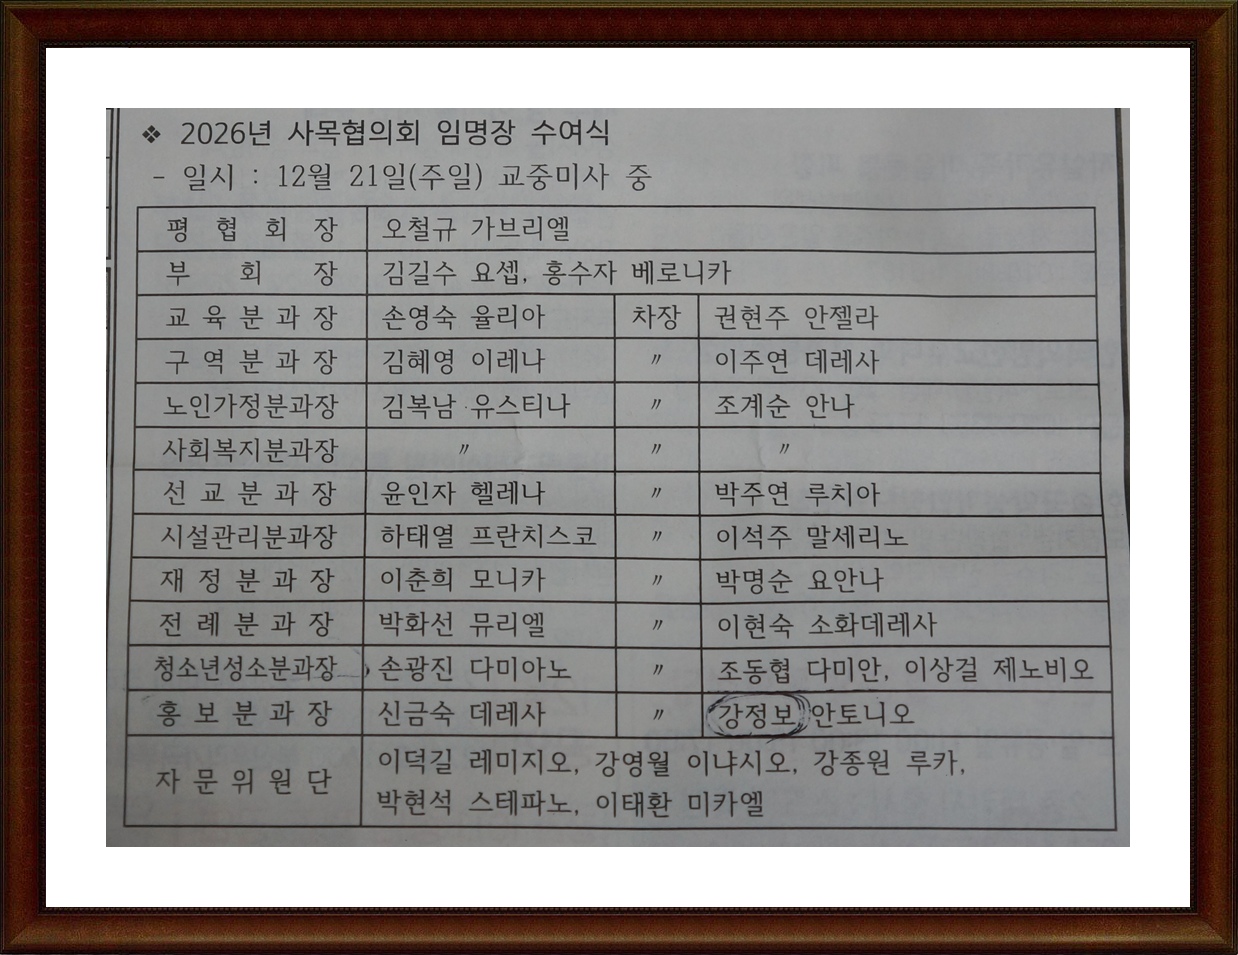 ❖ 2026년 사목협의회 임명장 수여식
- 일시 : 12월 21일(주일) 교중미사 중
평 협 회 장 오철규 가브리엘
부 회 장 김길수 요셉, 홍수자 베로니카
교 육 분 과 장 손영숙 율리아 차장 권현주 안젤라
구 역 분 과 장 김혜영 이레나 〃 이주연 데레사
노인가정분과장 김복남 유스티나 〃 조계순 안나
사회복지분과장 〃 〃 〃
선 교 분 과 장 윤인자 헬레나 〃 박주연 루치아
시설관리분과장 하태열 프란치스코 〃 이석주 말세리노
재 정 분 과 장 이춘희 모니카 〃 박명순 요안나
전 례 분 과 장 박화선 뮤리엘 〃 이현숙 소화데레사
청소년성소분과장 손광진 다미아노 〃 조동협 다미안, 이상걸 제노비오
홍 보 분 과 장 신금숙 데레사 〃 강정보 안토니오
자 문 위 원 단 이덕길 레미지오, 강영월 이냐시오, 강종원 루카,
박현석 스테파노, 이태환 미카엘